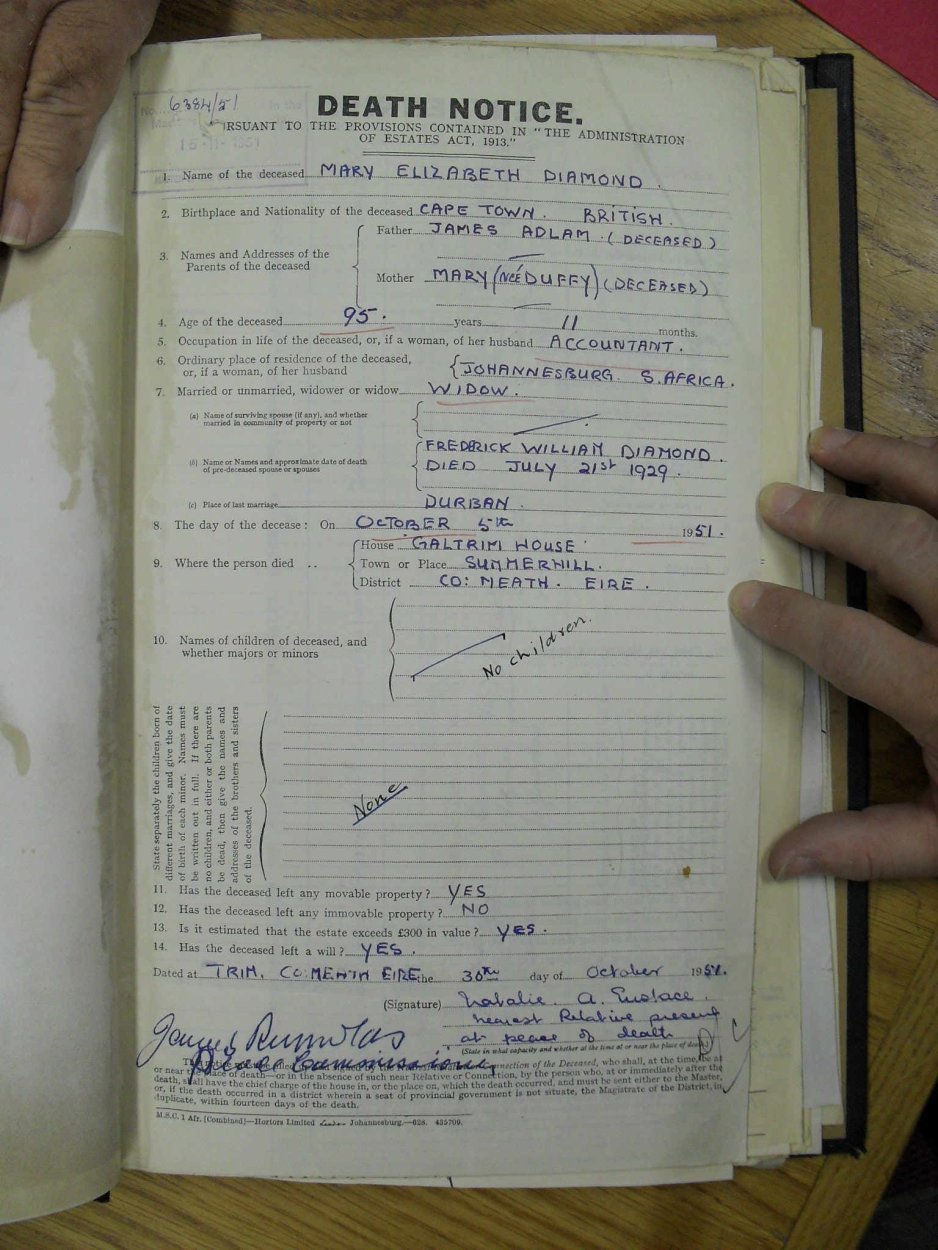 No. 6384/51 in the
15-11-1951
DEATH NOTICE.
PURSUANT TO THE PROVISIONS CONTAINED IN "THE ADMINISTRATION
OF ESTATES ACT, 1913."
1. Name of the deceased MARY ELIZABETH DIAMOND.
2. Birthplace and Nationality of the deceased CAPE TOWN. BRITISH.
3. Names and Addresses of the Parents of the deceased
Father JAMES ADLAM. (DECEASED)
Mother MARY (NEÉ DUFFY) (DECEASED)
4. Age of the deceased 95. years 11 months.
5. Occupation in life of the deceased, or, if a woman, of her husband ACCOUNTANT.
6. Ordinary place of residence of the deceased,
or, if a woman, of her husband JOHANNESBURG. S. AFRICA.
7. Married or unmarried, widower or widow WIDOW.
(a) Name of surviving spouse (if any), and whether
married in community of property or not
(b) Name or Names and approximate date of death
of pre-deceased spouse or spouses
FREDERICK WILLIAM DIAMOND.
DIED JULY 21st 1929.
(c) Place of last marriage DURBAN.
8. The day of the decease: On OCTOBER 5th 1951.
9. Where the person died ..
House GALTRIM HOUSE
Town or Place SUMMERHILL.
District CO: MEATH. EIRE.
10. Names of children of deceased, and
whether majors or minors
No children.
State separately the children born of
different marriages, and give the date
of birth of each minor. Names must
be written out in full. If there are
no children, and either or both parents
be dead, then give the names and
addresses of the brothers and sisters
of the deceased.
None
11. Has the deceased left any movable property? YES
12. Has the deceased left any immovable property? NO
13. Is it estimated that the estate exceeds £300 in value? YES.
14. Has the deceased left a will? YES.
Dated at TRIM, CO: MEATH EIRE the 30th day of October 1951.
(Signature) Natalie. A. Eustace.
nearest Relative present
at place of death
(State in what capacity and whether at the time at or near the place of death)
James Reynolds
Peace Commissioner
connection of the Deceased, who shall, at the time, be at
or near the place of death—or in the absence of such near Relative or Connection, by the person who, at or immediately after the
death, shall have the chief charge of the house in, or the place on, which the death occurred, and must be sent either to the Master,
or, if the death occurred in a district wherein a seat of provincial government is not situate, the Magistrate of the District, in
duplicate, within fourteen days of the death.
M.S.C. 1 Afr. [Combined]—Hortors Limited Johannesburg.—628. 435709.